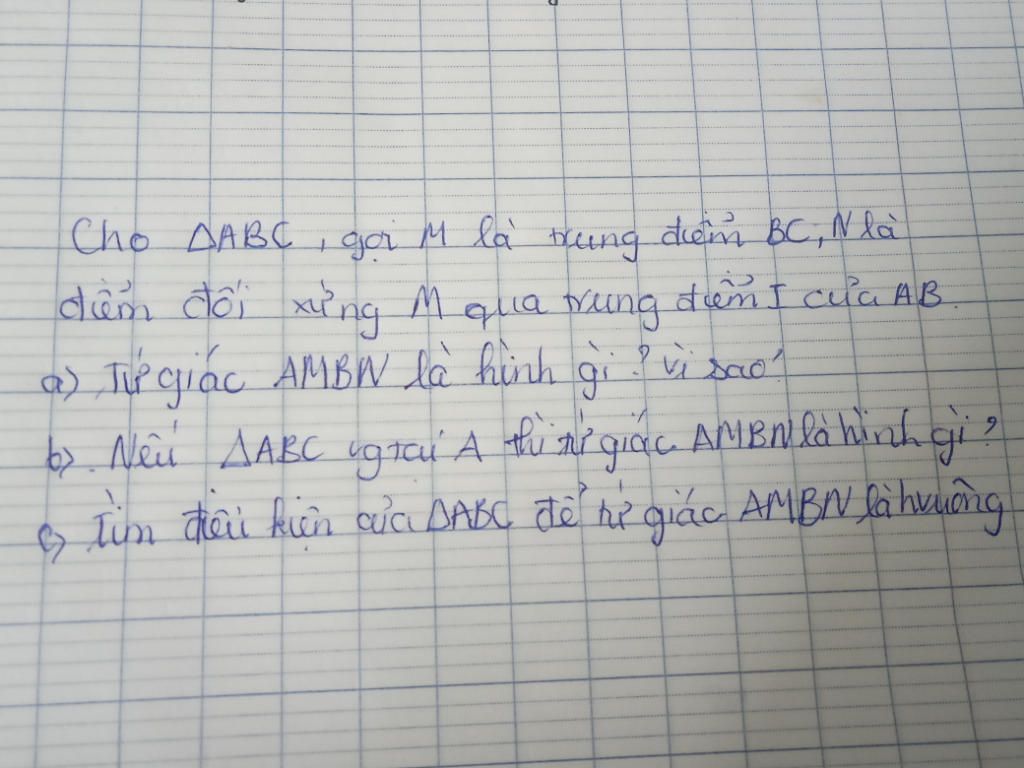 Cho ΔABC, gọi M là trung điểm BC, N là
điểm đối xứng M qua trung điểm I của AB.
a) Tứ giác AMBN là hình gì? Vì sao?
b). Nếu ΔABC vg tại A thì tứ giác AMBN là hình gì?
c) Tìm điều kiện của ΔABC để tứ giác AMBN là hvuông